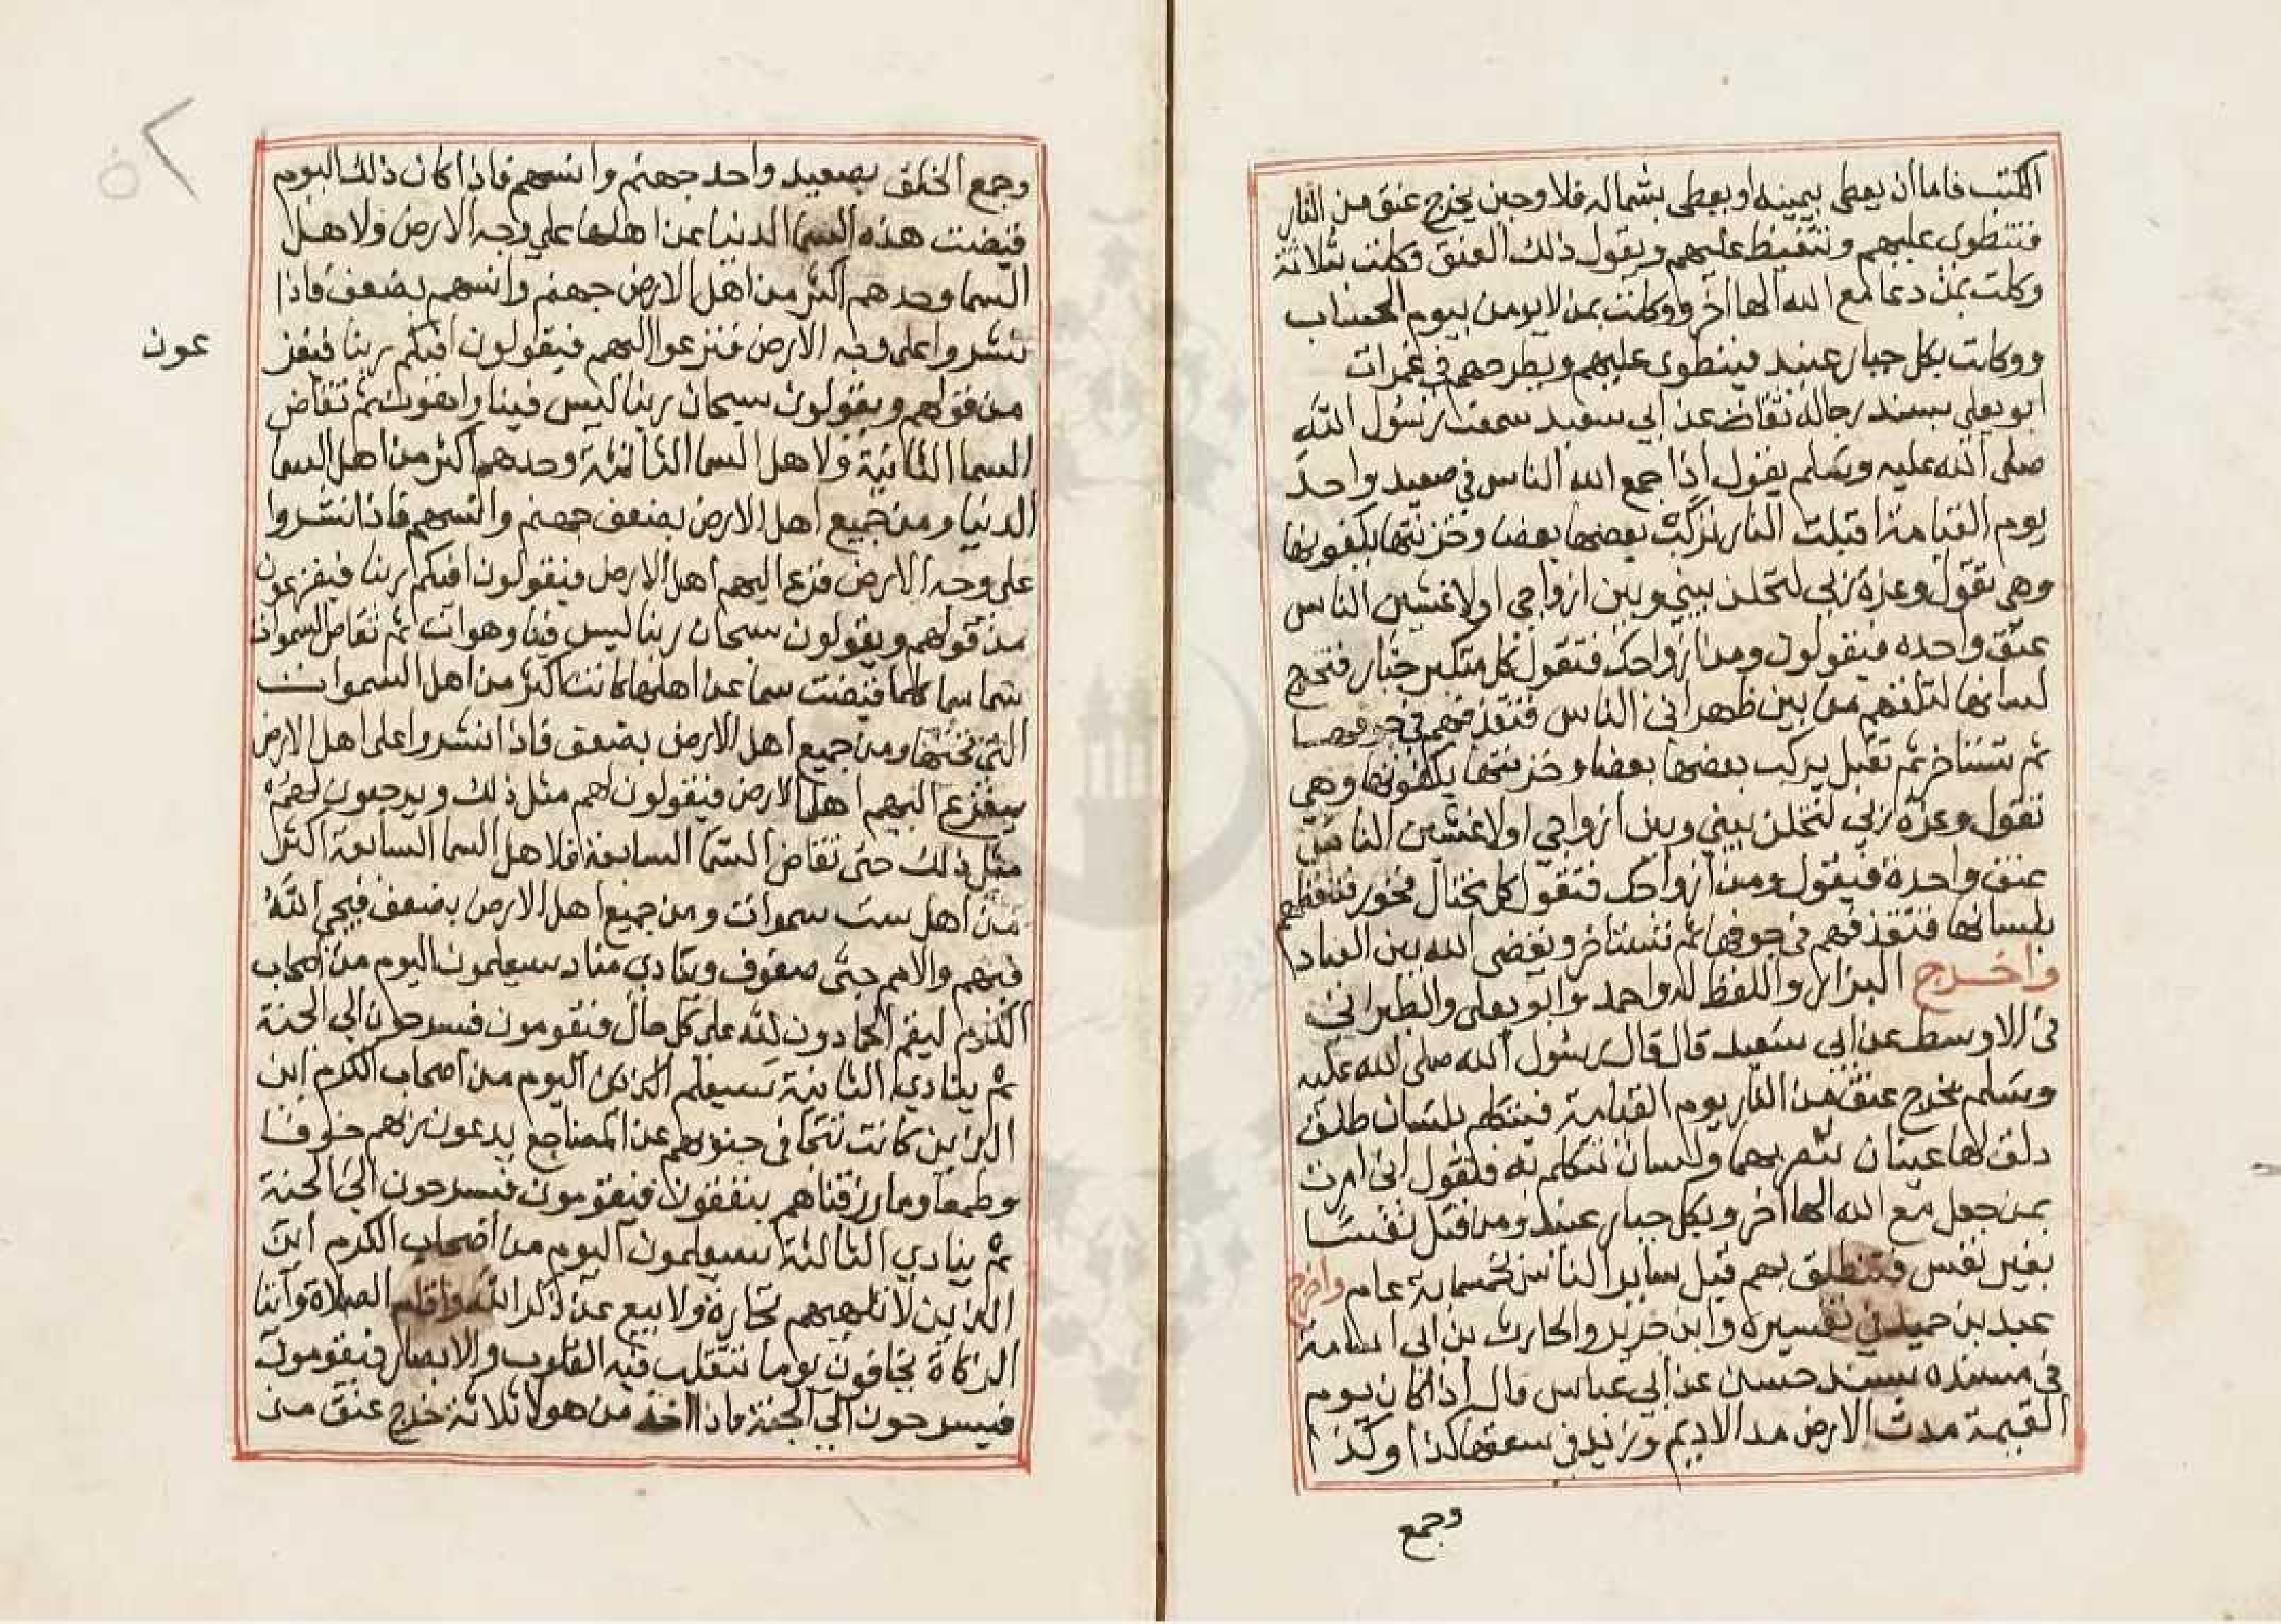 الكتب فاما ان يعطى بيمينه او يعطى بشماله فلا وحين يخرج عنق من النار
فتنطوى عليهم وتتغيظ عليهم ويقول ذلك العنق وكلت بثلاثة
وكلت بمن دعا مع الله الها آخر ووكلت بمن لا يومن بيوم الحساب
ووكلت بكل جبار عنيد فينطوى عليهم ويطرحهم في غمرات
ابو يعلى بسند رجاله ثقاة عن ابي سعيد سمعت رسول الله
صلى الله عليه وسلم يقول اذا جمع الله الناس في صعيد واحد
يوم القيامة اقبلت النار تركب بعضها بعضا وخزنتها يكفونها
وهي تقول وعزة ربي لتخلن بيني وبين ازواجي او لاغشين الناس
عنق واحده فيقولون ومن ازواجك فتقول كل متكبر جبار فتخرج
لسانها فتلتقطهم من بين ظهراني الناس فتقذفهم في جوفها
ثم تستاخر ثم تقبل يركب بعضها بعضا وخزنتها يكفونها وهي
تقول وعزة ربي لتخلن بيني وبين ازواجي او لاغشين الناس
عنق واحدة فيقول ومن ازواجك فتقول كل مختال فخور فتلتقطهم
بلسانها فتقذفهم في جوفها ثم تستاخر ويقضى الله بين العباد
واخرج البزار واللفظ له واحمد وابو يعلى والطبراني
في الاوسط عن ابي سعيد قال قال رسول الله صلى الله عليه
وسلم يخرج عنق من النار يوم القيامة فيتكلم بلسان طلق
دلق لها عينان تبصر بهما ولسان تتكلم به فتقول اني امرت
بمن جعل مع الله الها آخر وبكل جبار عنيد ومن قتل نفسا
بغير نفس فتنطلق بهم قبل ساير الناس بخمسماية عام واخرج
عبد بن حميد في تفسيره وابن جرير والحارث بن ابي اسامة
في مسنده بسند حسن عن ابي عباس قال اذا كان يوم
القيمة مدت الارض مد الاديم وزيد في سعتها كذا وكذا
وجمع
وجمع الخلق بصعيد واحد جهنم وانسهم فاذا كان ذلك اليوم
قيضت هذه السما الدنيا عن اهلها علي وجه الارض ولاهل
السما وحدهم اكثر من اهل الارض جهنم وانسهم بضعف فاذا
نتشروا على وجه الارض فنزعوا اليهم فيقولون افيكم ربنا فيفز
عون
من قولهم ويقولون سبحان ربنا ليس فينا وهوات ثم تقاض
السما الثانية ولاهل السما الثانية وحدهم اكثر من اهل السما
الدنيا ومن جميع اهل الارض بضعف جهنم وانسهم فاذا نتشروا
على وجه الارض فزع اليهم اهل الارض فيقولون افيكم ربنا فيفزعون
من قولهم ويقولون سبحان ربنا ليس فينا وهوات ثم تقاض السموات
سما سما كلما قيضت سما عن اهلها كانت اكثر من اهل السموات
التي تحتها ومن جميع اهل الارض بضعف فاذا انتشروا على اهل الارض
يفزع اليهم اهل الارض فيقولون لهم مثل ذلك ويرجعون لهم
مثل ذلك حتى تقاض السما السابعة فلاهل السما السابعة اكثر
من اهل ست سموات ومن جميع اهل الارض بضعف فيجي الله
فيهم والامم جثى صفوف وينادي مناد سيعلمون اليوم من اصحاب
الكرم ليقم الحمادون لله على كل حال فيقومون فيسرحون الي الجنة
ثم ينادي الثانية سيعلم اليوم من اصحاب الكرم اين
الذين كانت تتجافى جنوبهم عن المضاجع يدعون ربهم خوفا
وطمعا ومما رزقناهم ينفقون فيقومون فيسرحون الي الجنة
ثم ينادي الثالثة سيعلمون اليوم من اصحاب الكرم اين
الذين لا تلهيهم تجارة ولا بيع عن ذكر الله واقام الصلاة وايتا
الزكاة يخافون يوما تتقلب فيه القلوب والابصار فيقومون
فيسرحون الي الجنة فاذا اخذ من هولا ثلاثة خرج عنق من